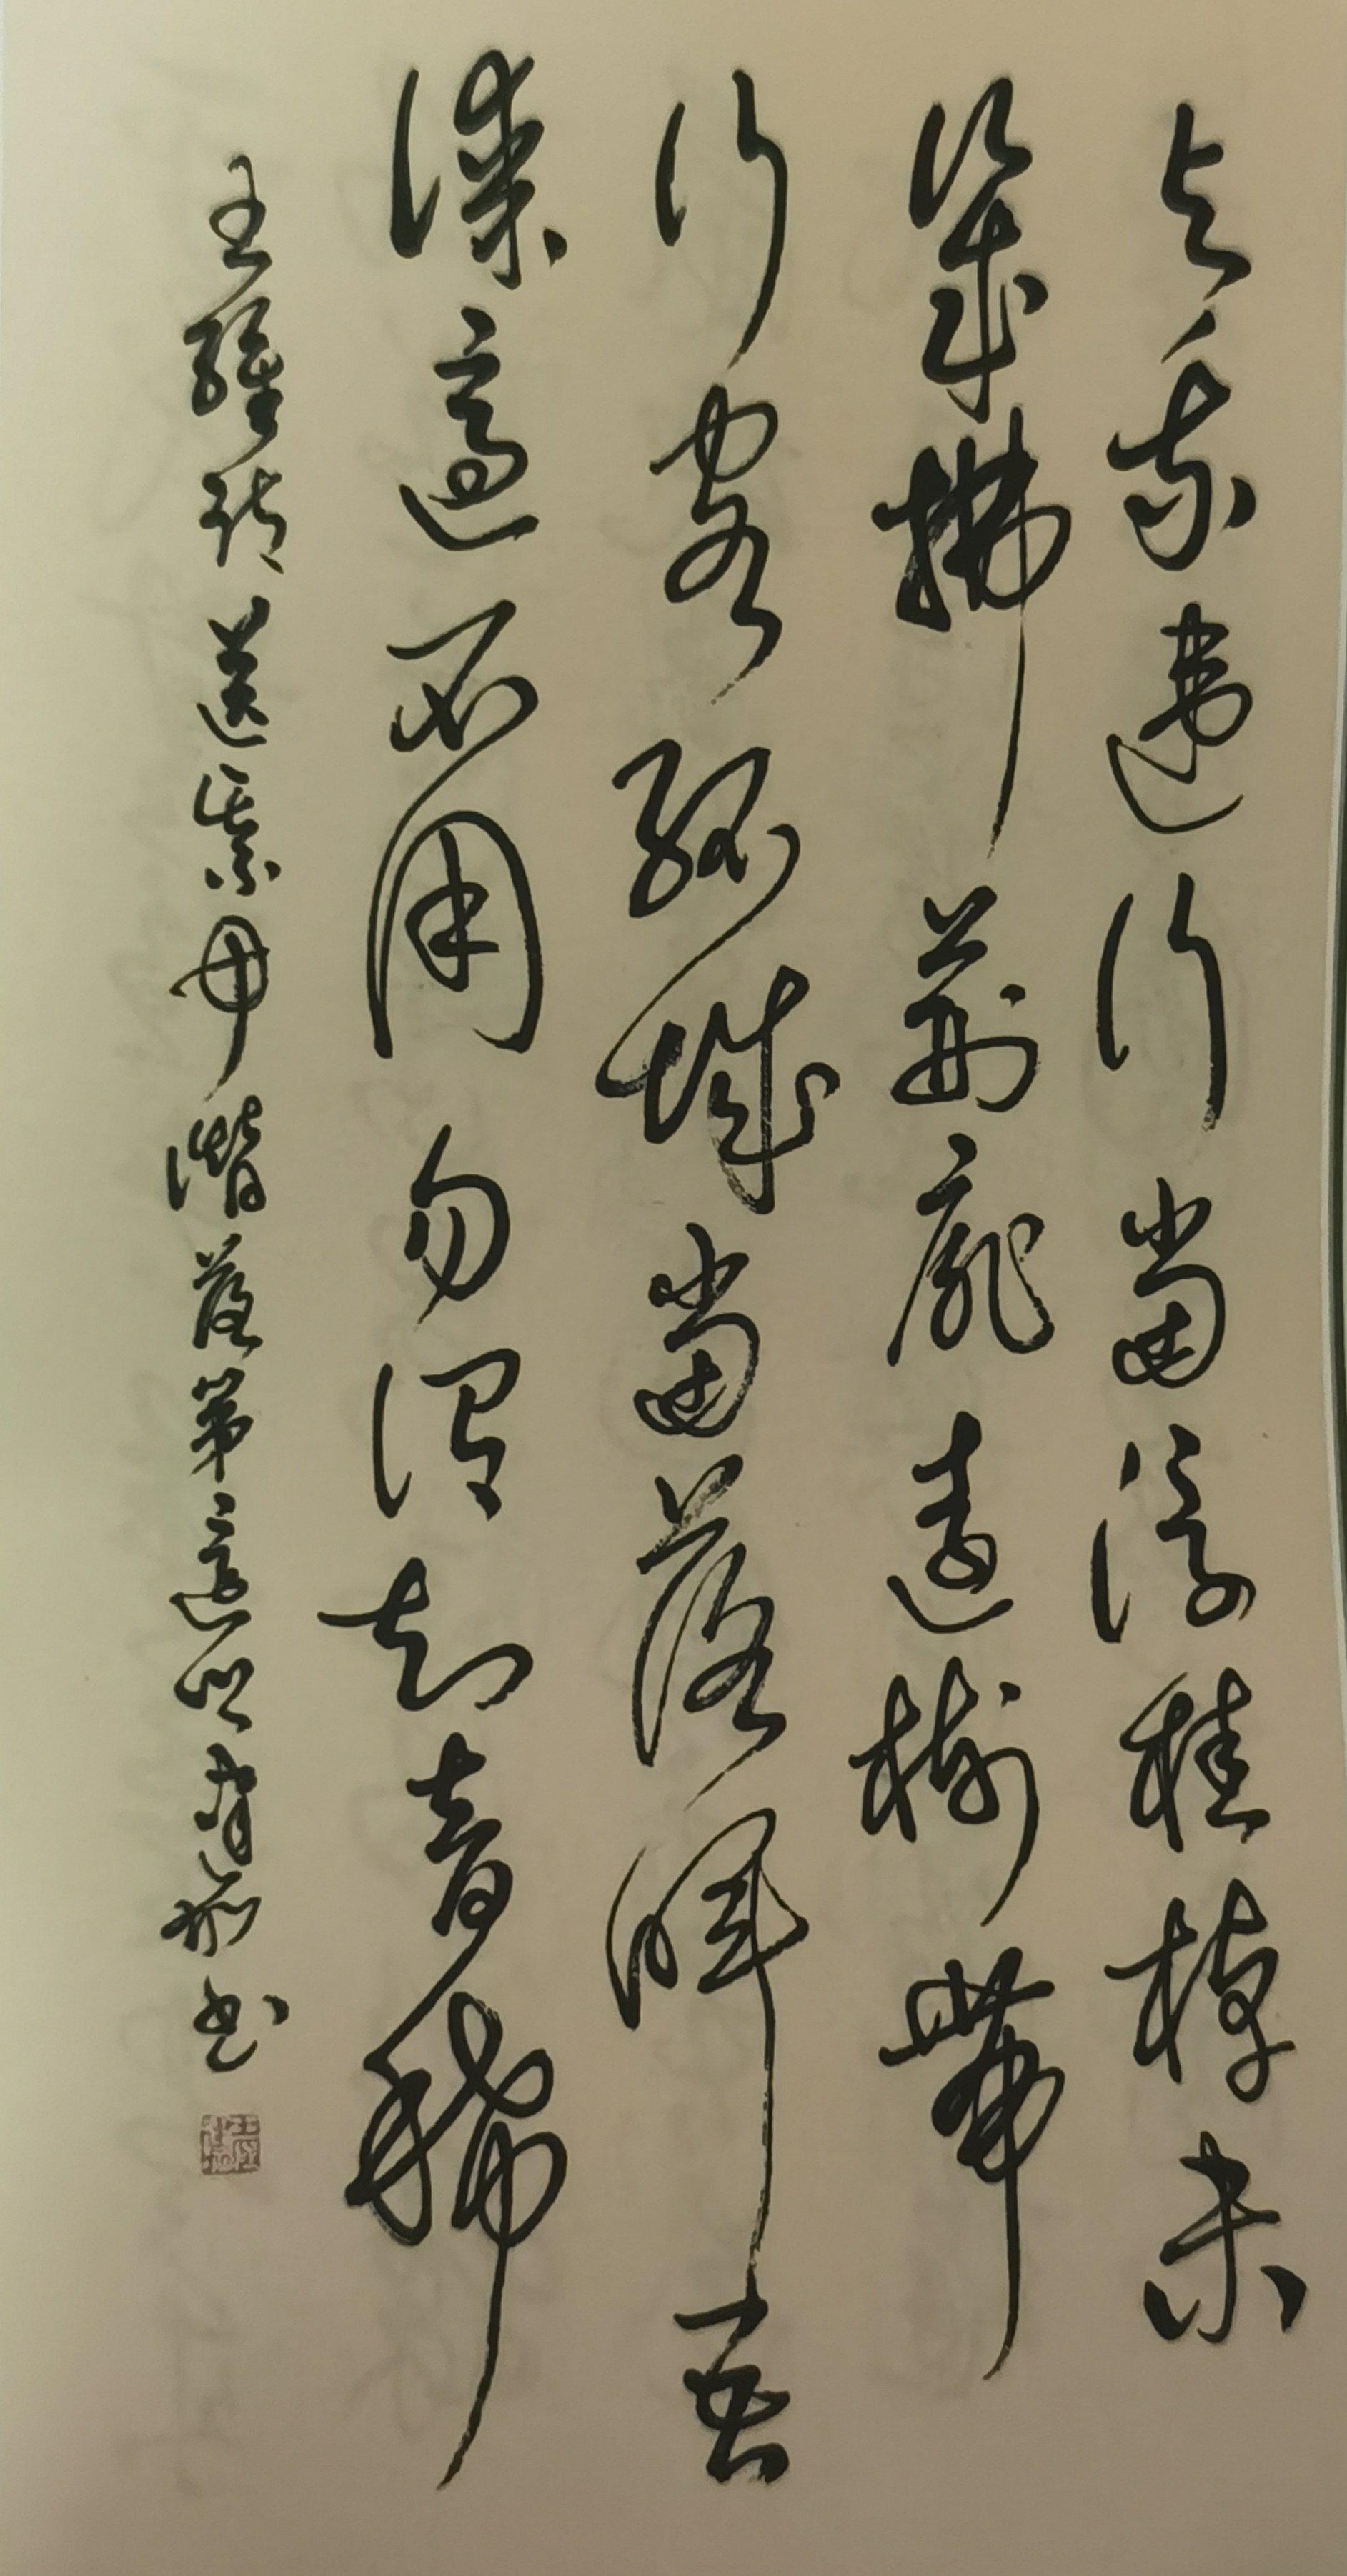 与我違行當浮桂棹未
幾拂荊扉遠樹帶
行客孤城當落暉吾
謀適不用勿謂知音稀
王維詩送綦毋潛落第還鄉 书